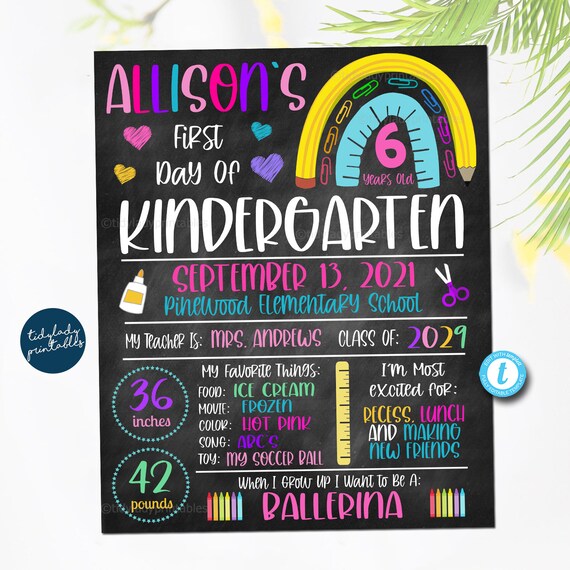 ALLISON'S
FIRST
DAY OF
6
YEARS OLD
KINDERGARTEN
SEPTEMBER 13, 2021
PINEWOOD ELEMENTARY SCHOOL
MY TEACHER IS: MRS. ANDREWS CLASS OF: 2029
36
inches
42
pounds
MY FAVORITE THINGS:
FOOD: ICE CREAM
MOVIE: FROZEN
COLOR: HOT PINK
SONG: ABC'S
TOY: MY SOCCER BALL
I'M MOST
EXCITED FOR:
RECESS, LUNCH
AND MAKING
NEW FRIENDS
WHEN I GROW UP I WANT TO BE A:
BALLERINA
tidylady
printables
t